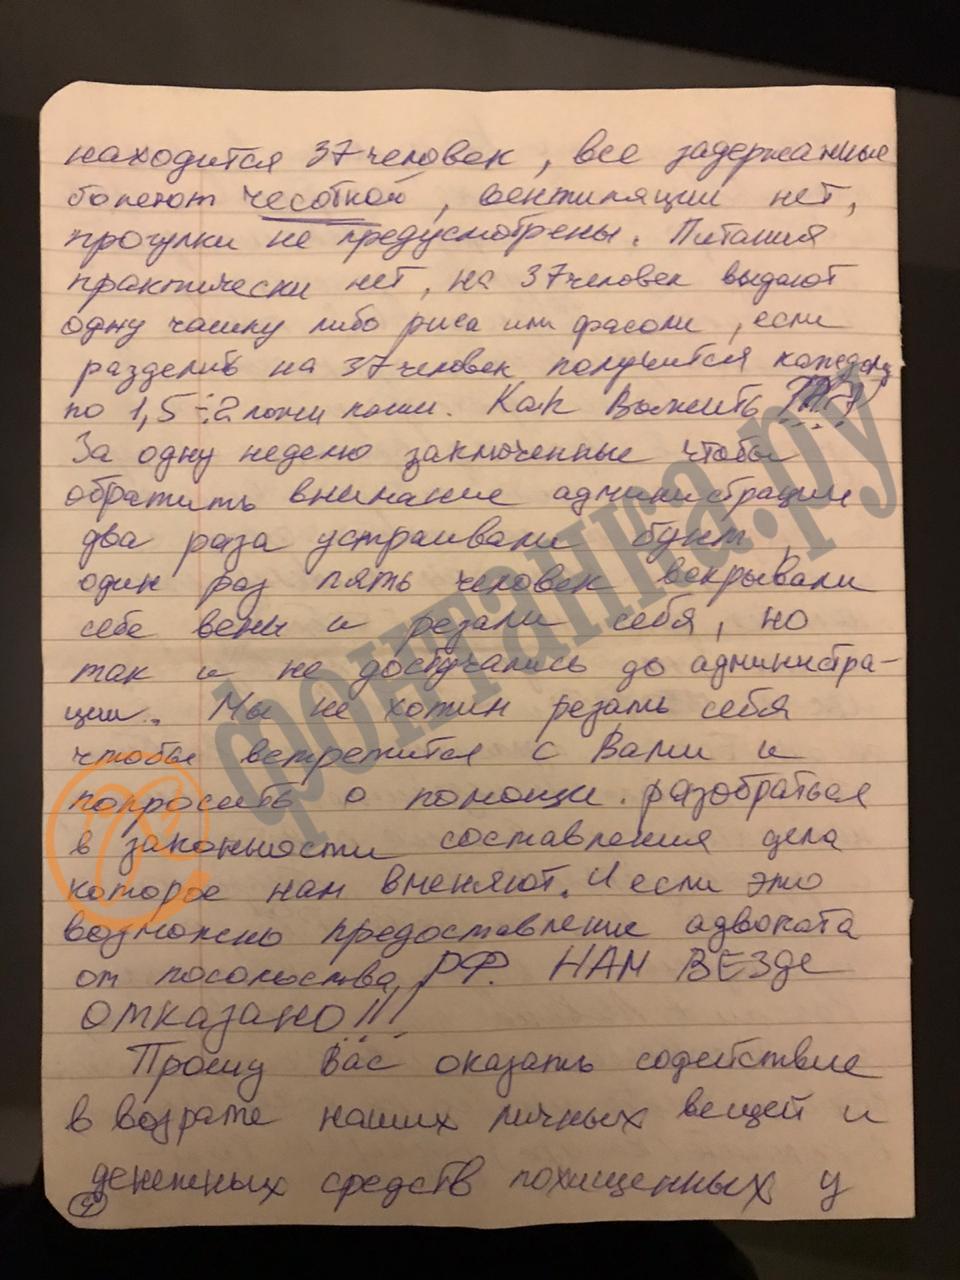 находится 37 человек, все задержанные
болеют чесоткой, вентиляции нет,
прогулки не предусмотрены. Питания
практически нет, на 37 человек выдают
одну чашку либо риса или фасоли, если
разделить на 37 человек получится каждому
по 1,5÷2 ложки каши. Как выжить ???
За одну неделю заключенные чтобы
обратить внимание администрации
два раза устраивали бунт,
один раз пять человек вскрывали
себе вены и резали себя, но
так и не достучались до администра-
ции. Мы не хотим резать себя
чтобы встретится с Вами и
попросить о помощи. разобраться
в законности составления дела
которое нам вменяют. И если это
возможно предоставление адвоката
от посольства РФ. НАМ ВЕЗДЕ
ОТКАЗАНО!!!
Прошу Вас оказать содействие
в возрате наших личных вещей и
денежных средств похищенных у
4
фонтанка.ру